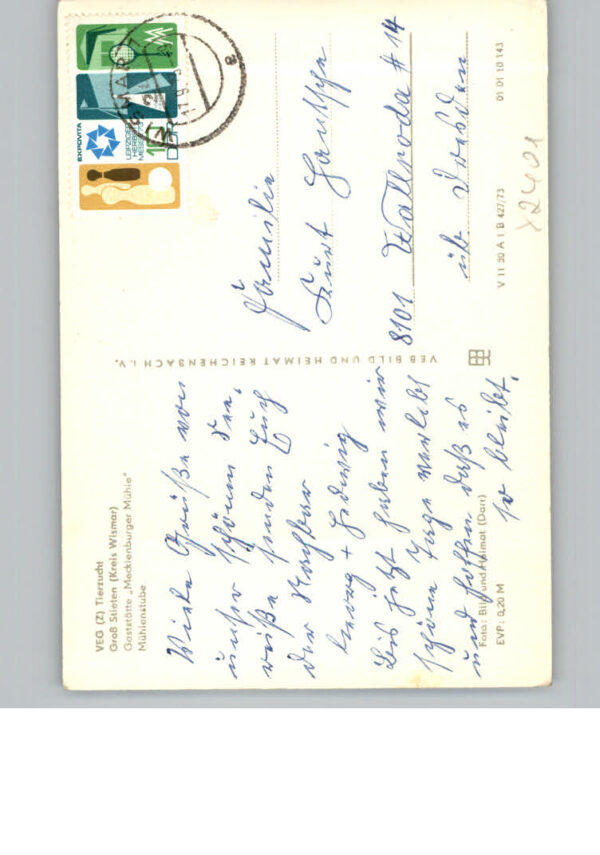 VEG (Z) Tierzucht
Groß Stieten (Kreis Wismar)
Gaststätte „Mecklenburger Mühle"
Mühlenstube
Viele Grüße von
unser schönen See,
senden Euch
der Nachbar
+ Hedwig
Bis jetzt haben wir
schöne Tage verlebt
und hoffen daß es
so bleibt.
Foto: Bild und Heimat (Darr)
EVP: 0,20 M
VEB BILD UND HEIMAT REICHENBACH i. V.
EXPOVITA
LEIPZIGER
HERBST
MESSE
10
DDR
WISMAR
Familie
Kurt
8101 Wallroda # 14
üb. Dresden
V 11 50 A 1 B 427/73
01 01 10 143
X2401